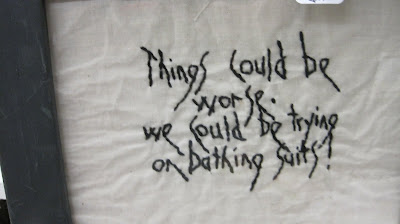 Things could be
worse.
we could be trying
on bathing suits!